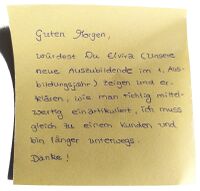 Guten Morgen,
würdest Du Elvira (Unsere
neue Auszubildende im 1. Aus-
bildungsjahr) zeigen und er-
klären, wie man richtig mittel-
wertig einartikuliert, ich muss
gleich zu einem Kunden und
bin länger unterwegs.
Danke!